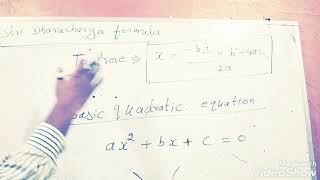 Shri Dharacharya formula
To Prove ⇒ x = -b ± √b²-4ac / 2a
Basic quadratic equation
ax² + bx + c = 0
Made with
VideoShow